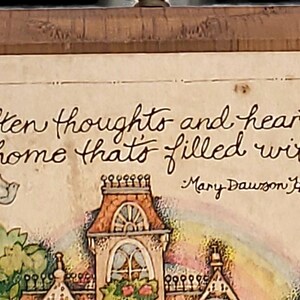 ften thoughts and hear
home that's filled wi
Mary Dawson H